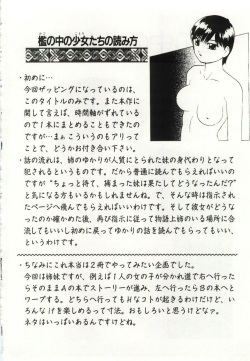 檻の中の少女たちの読み方
・初めに…
今回ザッピングになっているのは、
このタイトルのみです。また本作に
関して言えば、時間軸がずれている
ので1本にまとめることもできたの
ですが…まぁこういうのもアリって
ことで、どうかお付き合い下さい。
・話の流れは、姉のゆかりが人質にとられた妹の身代わりとなって
犯されるというものです。だから普通に読んでもらえればいいの
ですが"ちょっと待て、捕まった妹は果たしてどうなったんだ?"
と気になる方もいるかもしれませんね。で、そんな時は指示され
たページへ飛んでもらえればいいわけです。そして彼女がどうな
ったのか確かめた後、再び指示に従って物語上姉のいる場所に合
流してもいいし初めに戻ってゆかりの話を読んでもらってもいい、
というわけです。
・ちなみにこれ本当は2冊でやってみたい企画でした。
今回は姉妹ですが、例えば1人の女の子が分かれ道で右へ行った
らそのままAの本でストーリーが進み、左へ行ったらBの本へと
ワープする。どちらへ行ってもHなコトが起きるわけだけど、い
ろんな口を楽しめるって寸法。おもしろいと思うけどなァ。
ネタはいっぱいあるんですけどね。